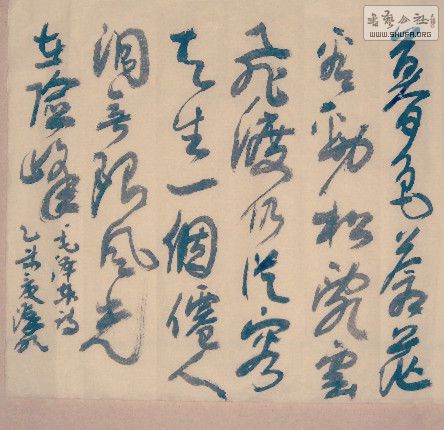 暮色蒼茫
看勁松亂雲
飛渡仍從容
天生一個僊人
洞無限風光
在險峰
毛澤東詩
乙未夏
書藝公社
WWW.SHUFA.ORG